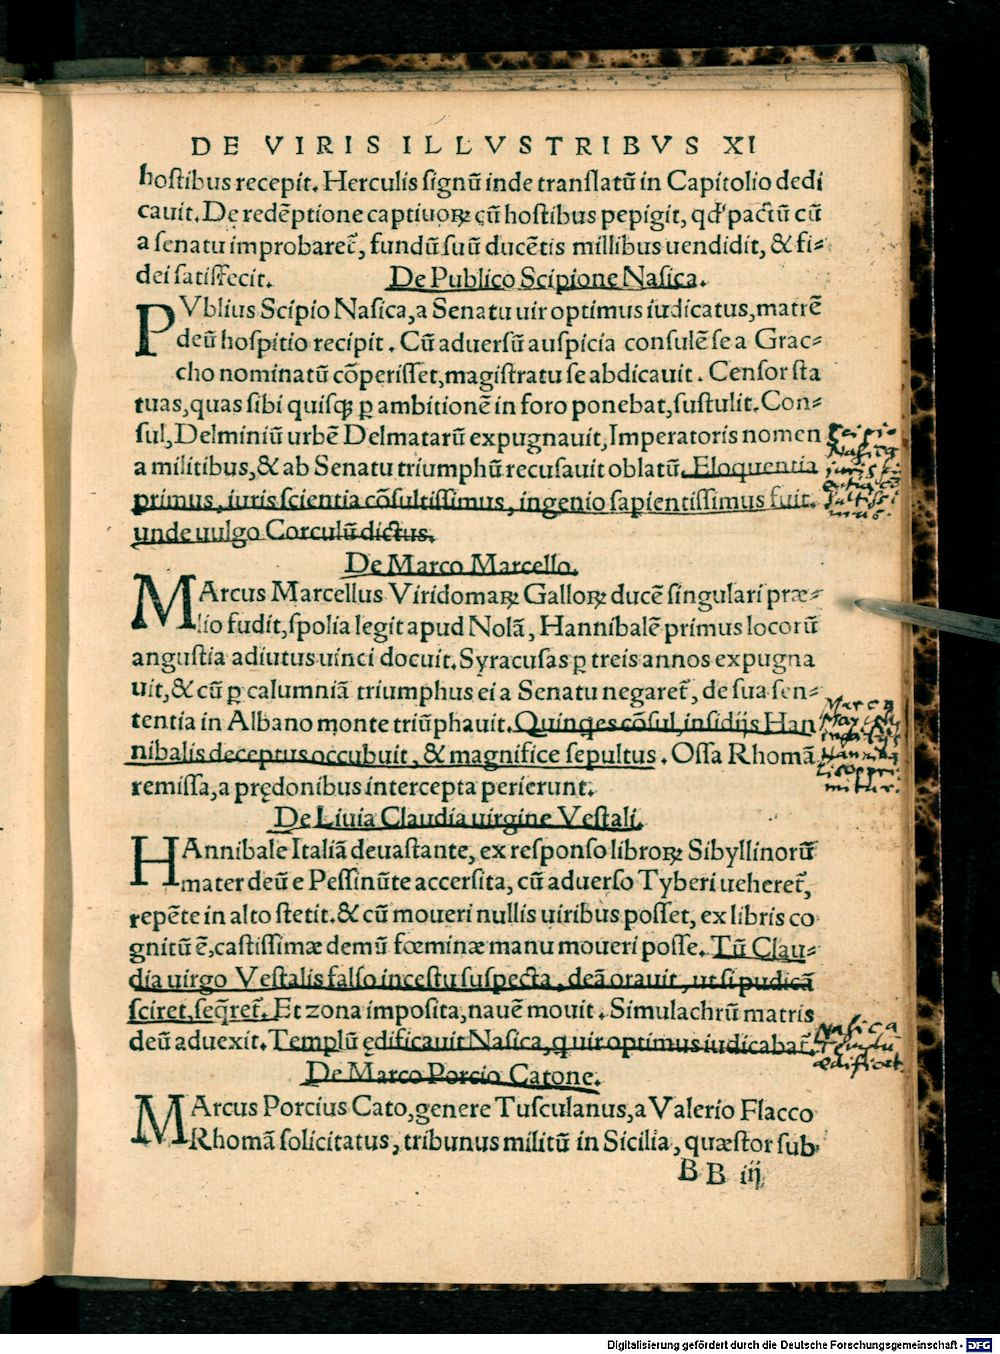 DE VIRIS ILLVSTRIBVS XI
hostibus recepit. Herculis signū inde translatū in Capitolio dedi
cauit. De redēptione captiuoꝝ cū hostibus pepigit, qd' pactū cū
a senatu improbaret᷑, fundū suū ducētis millibus uendidit, & fi-
dei satisfecit. De Publico Scipione Nasica.
PVblius Scipio Nasica, a Senatu uir optimus iudicatus, matrē
deū hospitio recipit. Cū aduersū auspicia consulē se a Grac-
cho nominatū cōperisset, magistratu se abdicauit. Censor sta
tuas, quas sibi quisqꝫ ꝑ ambitionē in foro ponebat, sustulit. Con-
sul, Delminiū urbē Delmatarū expugnauit, Imperatoris nomen
a militibus, & ab Senatu triumphū recusauit oblatū. Eloquentia
primus, iuris scientia cōsultissimus, ingenio sapientissimus fuit.
unde uulgo Corculū dictus.
Scipio
Nasica
iuris sci
entia cō
sultissi
mus.
De Marco Marcello.
MArcus Marcellus Viridomaꝝ Galloꝝ ducē singulari præ-
lio fudit, spolia legit apud Nolā, Hannibalē primus locorū
angustia adiutus uinci docuit. Syracusas ꝑ treis annos expugna
uit, & cū ꝑ calumniā triumphus ei a Senatu negaret᷑, de sua sen-
tentia in Albano monte triūphauit. Quinqes cōsul, insidijs Han
nibalis deceptus occubuit, & magnifice sepultus. Ossa Rhomā
remissa, a prędonibus intercepta perierunt.
Marcus
Marcell
insidijs
Hanniba
lis oppri
mitur.
De Liuia Claudia uirgine Vestali.
HAnnibale Italiā deuastante, ex responso libroꝝ Sibyllinorū
mater deū e Pessinūte accersita, cū aduerso Tyberi ueheret᷑,
repēte in alto stetit. & cū moueri nullis uiribus posset, ex libris co
gnitū ē, castissimæ demū fœminæ manu moueri posse. Tū Clau-
dia uirgo Vestalis falso incestu suspecta, deā orauit, ut si pudicā
sciret, seq̄ret᷑. Et zona imposita, nauē mouit. Simulachrū matris
deū aduexit. Templū ędificauit Nasica, q uir optimus iudicabat᷑.
Nasica
Templū
ædificat.
De Marco Porcio Catone.
MArcus Porcius Cato, genere Tusculanus, a Valerio Flacco
Rhomā solicitatus, tribunus militū in Sicilia, quæstor sub
BB iij
Digitalisierung gefördert durch die Deutsche Forschungsgemeinschaft - DFG